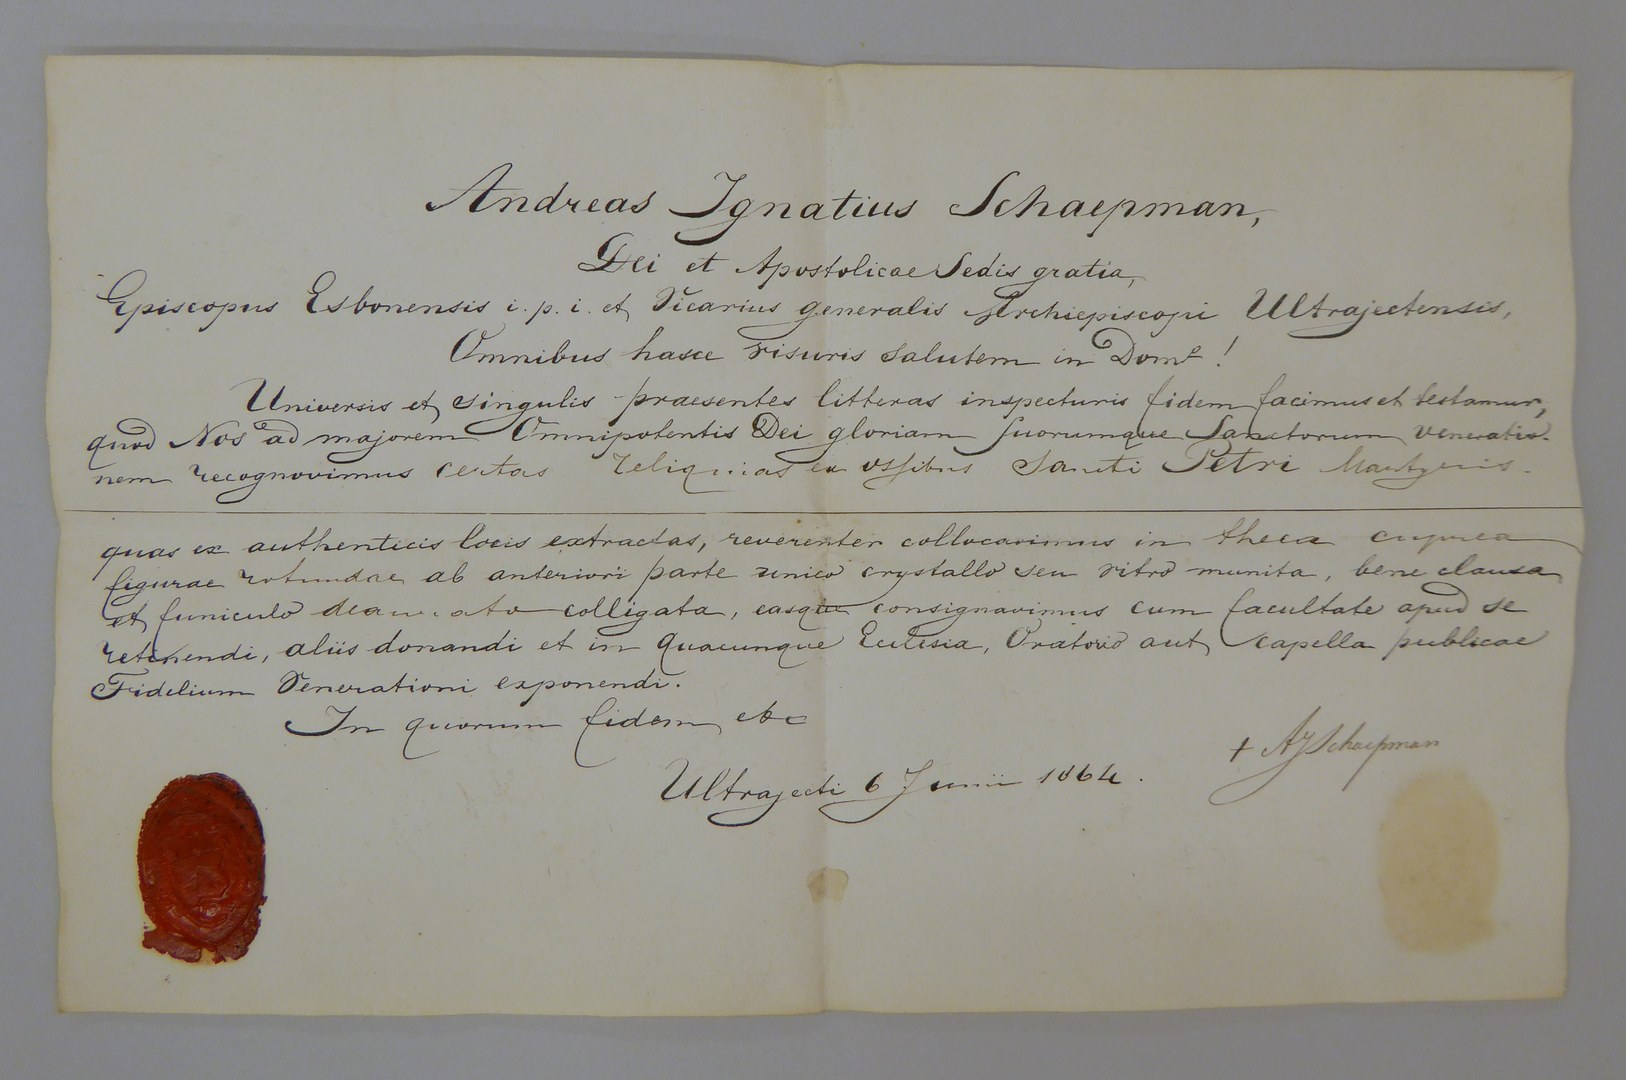 Andreas Ignatius Schaepman,
Dei et Apostolicae Sedis gratia,
Episcopus Esbonensis i. p. i. et Vicarius generalis Archiepiscopi Ultrajectensis,
Omnibus hasce visuris salutem in Domᵒ!
Universis et singulis praesentes litteras inspecturis fidem facimus et testamur,
quod Nos ad majorem Omnipotentis Dei gloriam suorumque Sanctorum veneratio-
nem recognovimus certas reliquias ex ossibus Sancti Petri Martyris.
quas ex authenticis locis extractas, reverenter collocavimus in theca cuprea
figurae rotundae ab anteriori parte unico crystallo seu vitro munita, bene clausa
et funiculo deaurato colligata, easque consignavimus cum facultate apud se
retinendi, aliis donandi et in quacunque Eclesia, Oratorio aut capella publicae
Fidelium Venerationi exponendi.
In quorum fidem etc
Ultrajecti 6 Junii 1864.
+ AJSchaepman